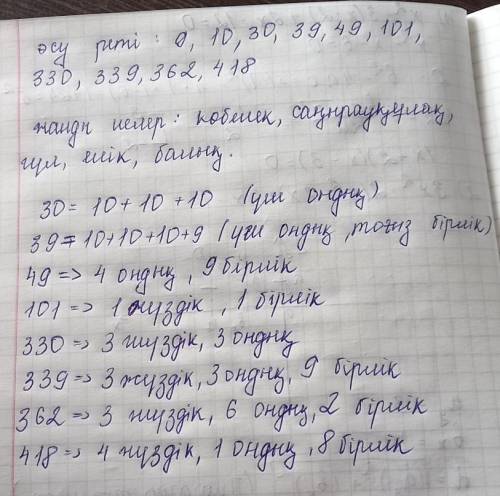 өсу реті : 9, 10, 30, 39, 49, 101,
330, 339, 362, 418
жанды иелер : көбелек, саңырауқұлақ,
гүл, елік, балық.
30 = 10 + 10 + 10 (үш ондық)
39 = 10+10+10+9 (үш ондық, тоғыз бірлік)
49 => 4 ондық, 9 бірлік
101 => 1 жүздік, 1 бірлік
330 => 3 жүздік, 3 ондық
339 => 3 жүздік, 3 ондық, 9 бірлік
362 => 3 жүздік, 6 ондық, 2 бірлік
418 => 4 жүздік, 1 ондық, 8 бірлік